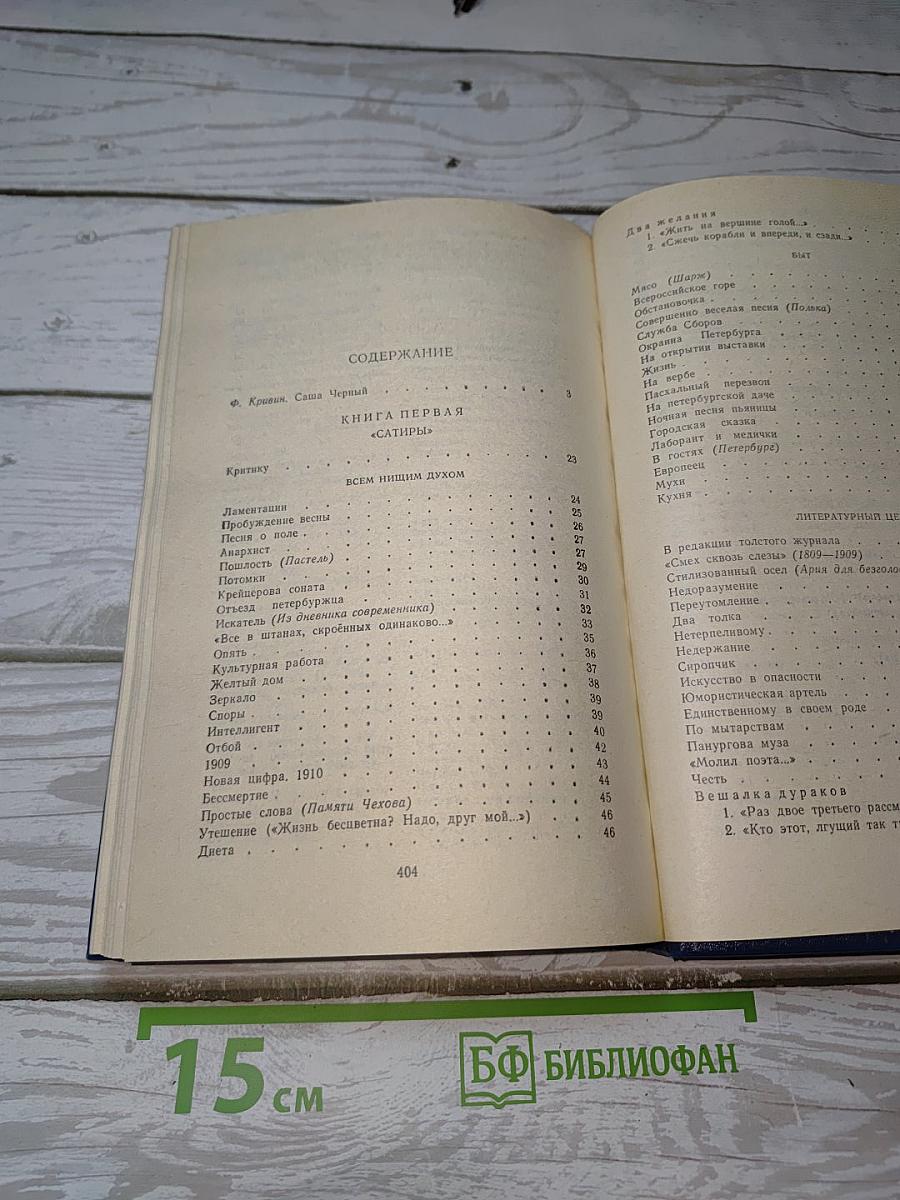 СОДЕРЖАНИЕ
Ф. Кривин. Саша Черный . . . . . . . . . . 3
КНИГА ПЕРВАЯ
«САТИРЫ»
Критику . . . . . . . . . . 23
ВСЕМ НИЩИМ ДУХОМ
Ламентации . . . . . . . . . . 24
Пробуждение весны . . . . . . . . . . 25
Песня о поле . . . . . . . . . . 26
Анархист . . . . . . . . . . 27
Пошлость (Пастель) . . . . . . . . . . 27
Потомки . . . . . . . . . . 29
Крейцерова соната . . . . . . . . . . 30
Отъезд петербуржца . . . . . . . . . . 31
Искатель (Из дневника современника) . . . . . 32
«Все в штанах, скроённых одинаково...» . . . . . 33
Опять . . . . . . . . . . 35
Культурная работа . . . . . . . . . . 36
Желтый дом . . . . . . . . . . 37
Зеркало . . . . . . . . . . 38
Споры . . . . . . . . . . 39
Интеллигент . . . . . . . . . . 39
Отбой . . . . . . . . . . 40
1909 . . . . . . . . . . 42
Новая цифра. 1910 . . . . . . . . . . 43
Бессмертие . . . . . . . . . . 44
Простые слова (Памяти Чехова) . . . . . . 45
Утешение («Жизнь бесцветна? Надо, друг мой...») . . . 46
Диета . . . . . . . . . . 46
404
Два желания
1. «Жить на вершине голой...» . . .
2. «Сжечь корабли и впереди, и сзади...»
БЫТ
Мясо (Шарж) . . . . . .
Всероссийское горе . . . . . .
Обстановочка . . . . . .
Совершенно веселая песня (Полька) . . .
Служба Сборов . . . . . .
Окраина Петербурга . . . . . .
На открытии выставки . . . . . .
Жизнь . . . . . .
На вербе . . . . . .
Пасхальный перезвон . . . . . .
На петербургской даче . . . . . .
Ночная песня пьяницы . . . . . .
Городская сказка . . . . . .
Лаборант и медички . . . . . .
В гостях (Петербург) . . . . . .
Европеец . . . . . .
Мухи . . . . . .
Кухня . . . . . .
ЛИТЕРАТУРНЫЙ ЦЕ
В редакции толстого журнала . . .
«Смех сквозь слезы» (1809—1909) . . .
Стилизованный осел (Ария для безголо
Недоразумение . . . . . .
Переутомление . . . . . .
Два толка . . . . . .
Нетерпеливому . . . . . .
Недержание . . . . . .
Сиропчик . . . . . .
Искусство в опасности . . . . .
Юмористическая артель . . . . .
Единственному в своем роде . .
По мытарствам . . . . . .
Панургова муза . . . . . .
«Молил поэта...» . . . . . .
Честь . . . . . .
Вешалка дураков
1. «Раз двое третьего рассм
2. «Кто этот, лгущий так т
15 см
БФ БИБЛИОФАН